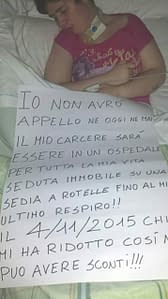 IO NON AVRÒ
APPELLO NE OGGI NE MAI
IL MIO CARCERE SARÀ
ESSERE IN UN OSPEDALE
PER TUTTA LA MIA VITA
SEDUTA IMMOBILE SU UNA
SEDIA A ROTELLE FINO AL MIO
ULTIMO RESPIRO!!
IL 4/11/2015 CHI
MI HA RIDOTTO COSÍ N
PUO AVERE SCONTI!!!